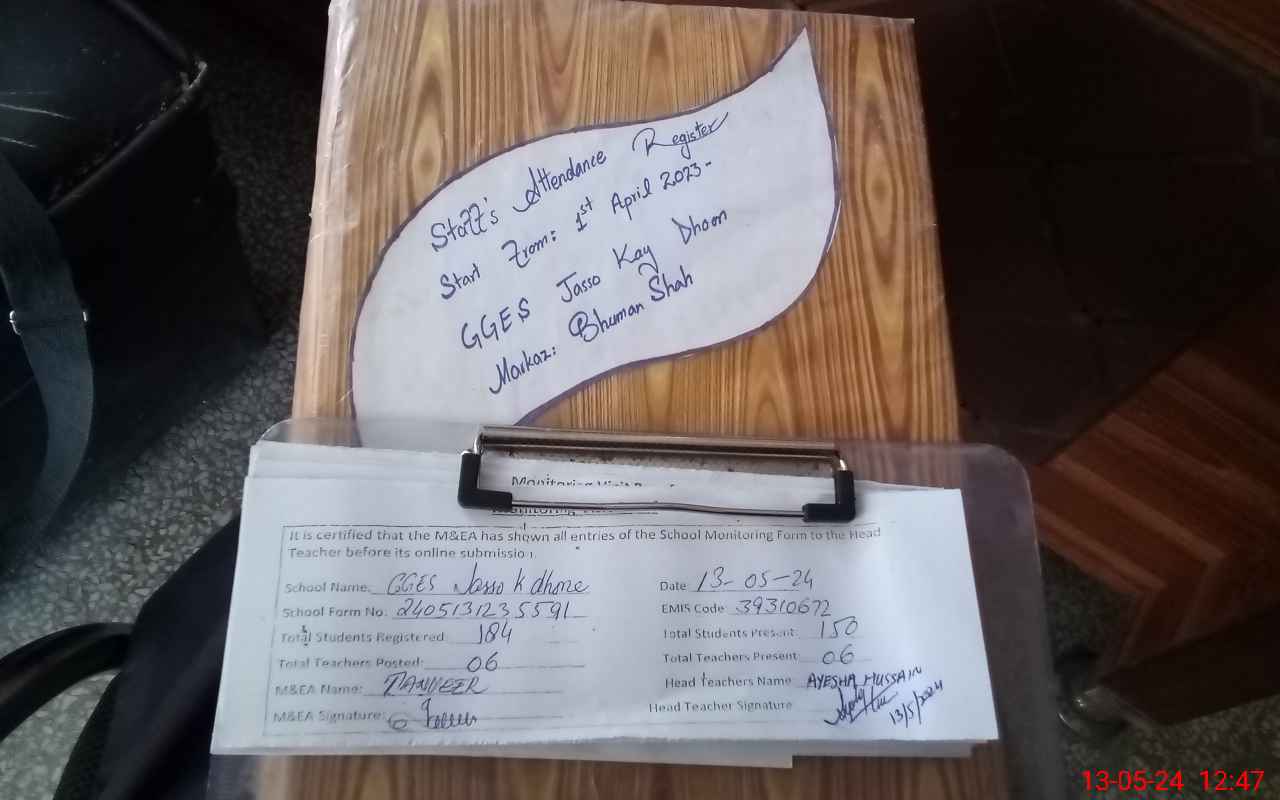 Staff's Attendance Register
Start From: 1st April 2023-
GGES Jasso Kay Dhoon
Markaz: Bhuman Shah
Monitoring Visit
It is certified that the M&EA has shown all entries of the School Monitoring Form to the Head
Teacher before its online submission.
School Name: GGES Jasso K dhone Date 13-05-24
School Form No: 2405131235591 EMIS Code 39310672
Total Students Registered 184 Total Students Present: 150
Total Teachers Posted: 06 Total Teachers Present 06
M&EA Name: TANVEER Head Teachers Name AYESHA HUSSAIN
M&EA Signature: Head Teacher Signature 13/5/2024
13-05-24 12:47